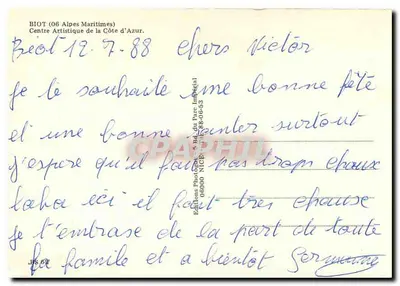 BIOT (06 Alpes Maritimes)
Centre Artistique de la Côte d'Azur.
Biot 12.7.88 chers Victor
je te souhaite une bonne fête
et une bonne santer surtout
j'espere qu'il fait pas trops chaux
laba ici il fait tres chause
je t'embrase de la part de toute
la famille et a bientôt Germaine
06000 NICE
CPARAMA